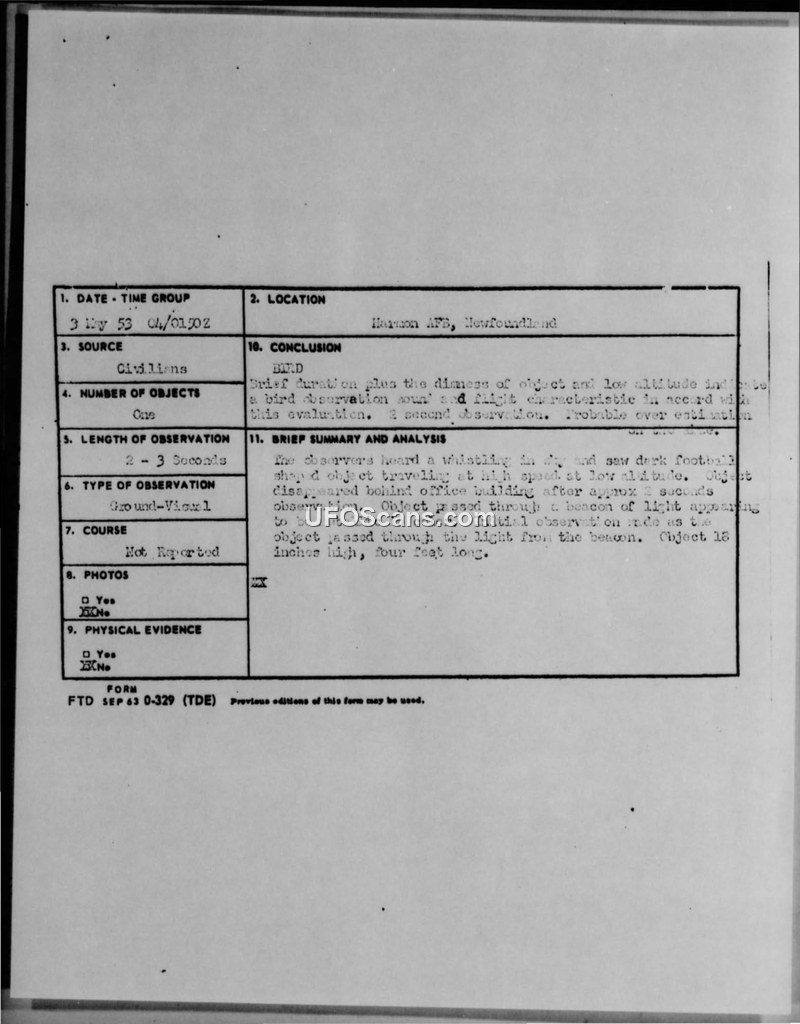 1. DATE - TIME GROUP
3 May 53 04/0150Z
2. LOCATION
Harmon AFB, Newfoundland
3. SOURCE
Civilians
10. CONCLUSION
BIRD
Brief duration plus the dimness of object and low altitude indicate
a bird observation sound and flight characteristic in accord with
this evaluation. 2 second observation. Probable over estimation
on the size.
4. NUMBER OF OBJECTS
One
5. LENGTH OF OBSERVATION
2 - 3 Seconds
11. BRIEF SUMMARY AND ANALYSIS
The observers heard a whistling in sky and saw dark football
shaped object traveling at high speed at low altitude. Object
disappeared behind office building after approx 2 seconds
observation. Object passed through a beacon of light appearing
to observation made as the
object passed through the light from the beacon. Object 18
inches high, four feet long.
6. TYPE OF OBSERVATION
Ground-Visual
7. COURSE
Not Reported
8. PHOTOS
□ Yes
No
9. PHYSICAL EVIDENCE
□ Yes
No
FORM
FTD SEP 63 0-329 (TDE) Previous editions of this form may be used.
UFOScans.com